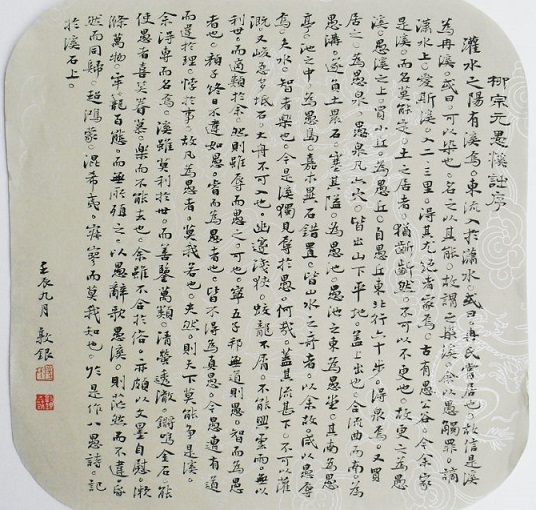 柳宗元愚溪詩序
灌水之陽有溪焉。東流入於瀟水。或曰。冉氏嘗居也。故信是溪
為冉溪。或曰。可以染也。名之以其能。故謂之染溪。余以愚觸罪。謫
瀟水上。愛斯溪。入二三里。得其尤絕者家焉。古有愚公谷。今余家
是溪。而名莫能定。土之居者。猶齗齗然。不可以不更也。故更之為愚
溪。愚溪之上。買小丘。為愚丘。自愚丘東北行六十步。得泉焉。又買
居之。為愚泉。愚泉凡六穴。皆出山下平地。蓋上出也。合流曲而南。為
愚溝。遂負土累石。塞其隘。為愚池。愚池之東為愚堂。其南為愚
亭。池之中。為愚島。嘉木異石錯置。皆山水之奇者。以余故。咸以愚辱
焉。夫水。智者樂也。今是溪獨見辱於愚。何哉。蓋其流甚下。不可以灌
溉。又峻急多坻石。大舟不可入也。幽邃淺狹。蛟龍不屑。不能興雲雨。無以
利世。而適類於余。然則雖辱而愚之。可也。寧五子邦無道則愚。智而為愚
者也。顏子終日不違如愚。睿而為愚者也。皆不得為真愚。今愚遭有道
而違於理。悖於事。故凡為愚者。莫我若也。夫然。則天下莫能爭是溪。
余得專而名焉。溪雖莫利於世。而善鑒萬類。清瑩透澈。鏘鳴金石。能
使愚者喜笑眷慕。樂而不能去也。余雖不合於俗。亦頗以文墨自慰。漱
滌萬物。牢籠百態。而無所避之。以愚辭歌愚溪。則茫然而不違。昏
然而同歸。超鴻蒙。混希夷。寂寥而莫我知也。於是作八愚詩。記
於溪石上。
壬辰九月 敦銀